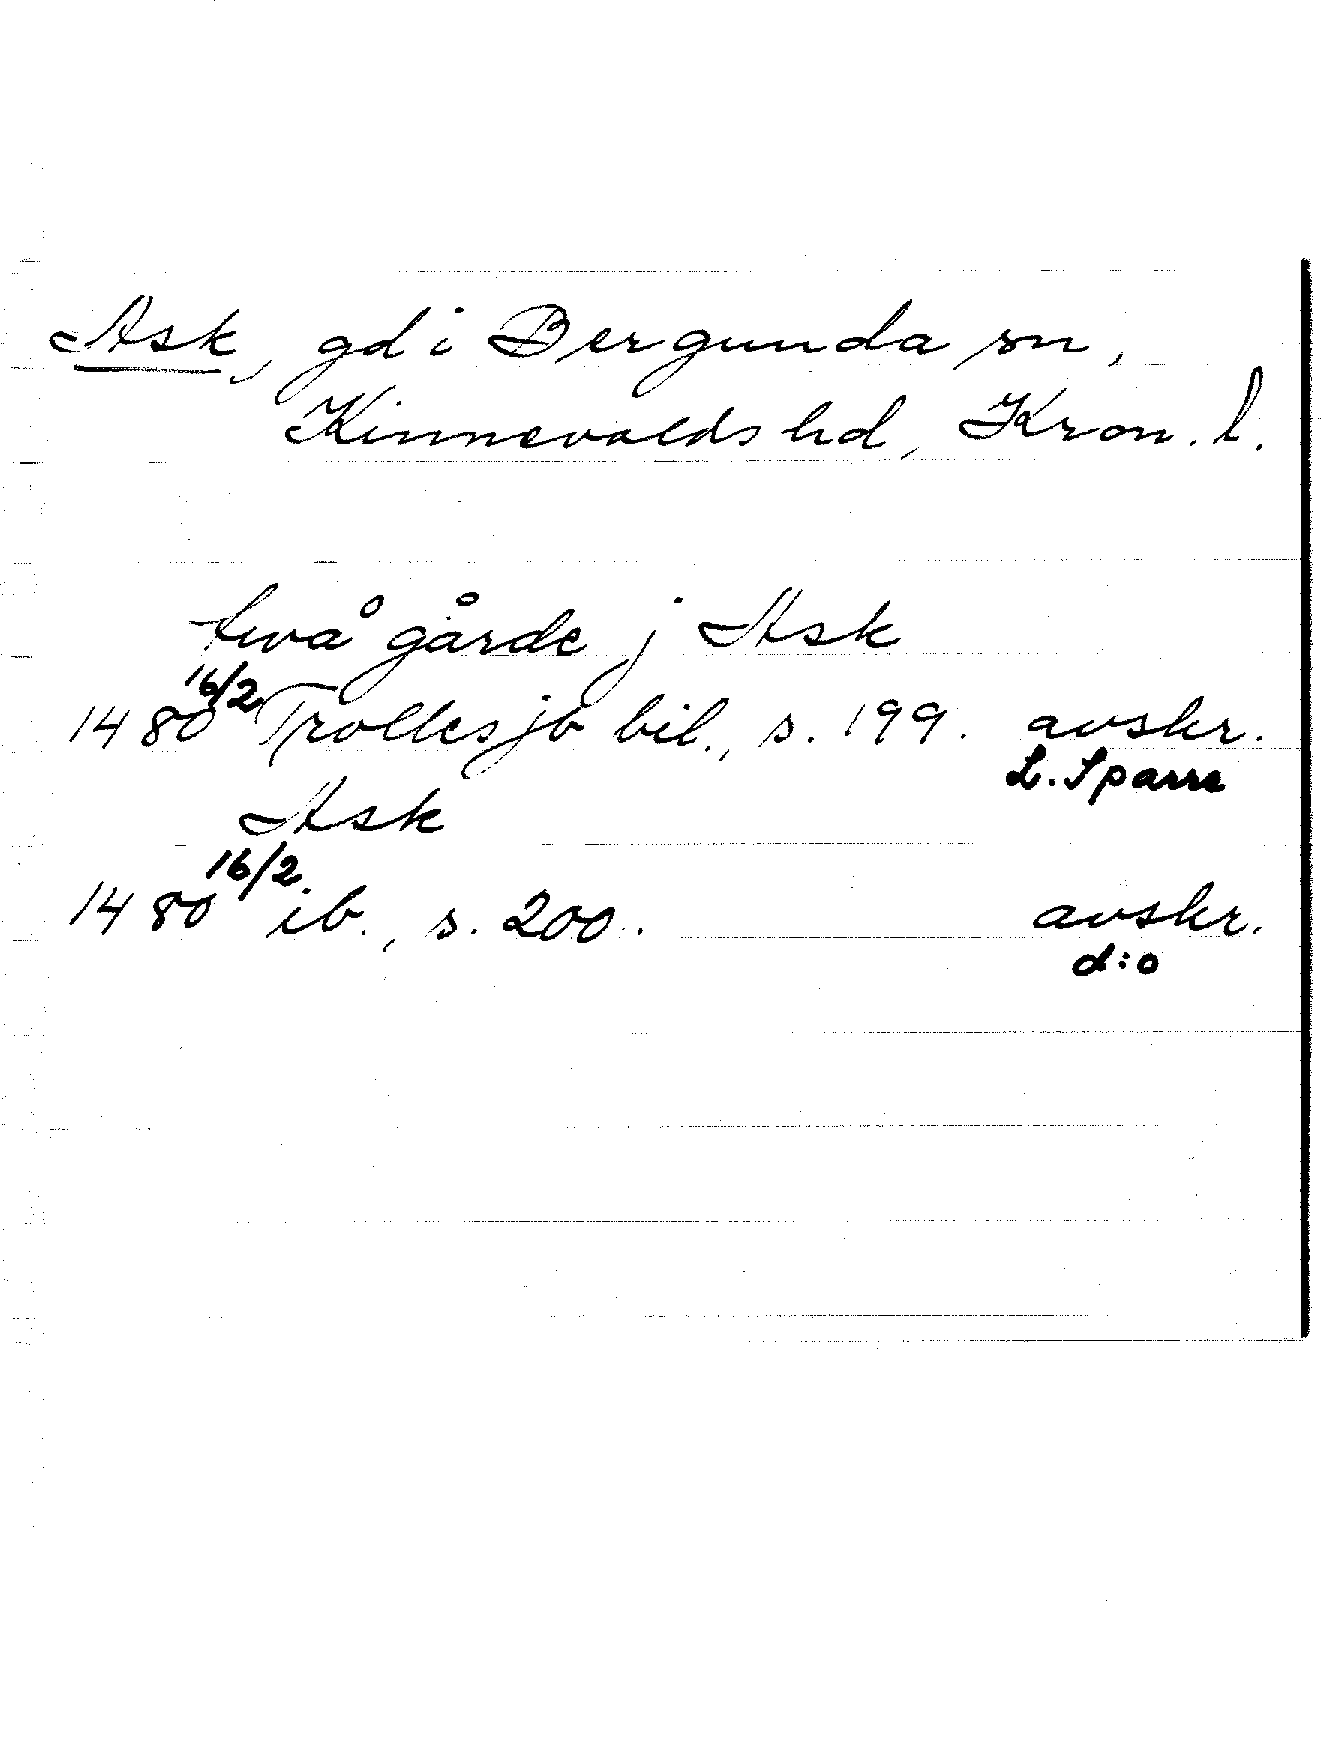 Ask, gd i Bergunda sn,
Kinnevalds hd, Kron. l.
två gårde j Ask
1480 16/2 Trolles jb bil., s. 199. avskr.
L. Sparre
Ask
1480 16/2 ib., s. 200. avskr.
d:o